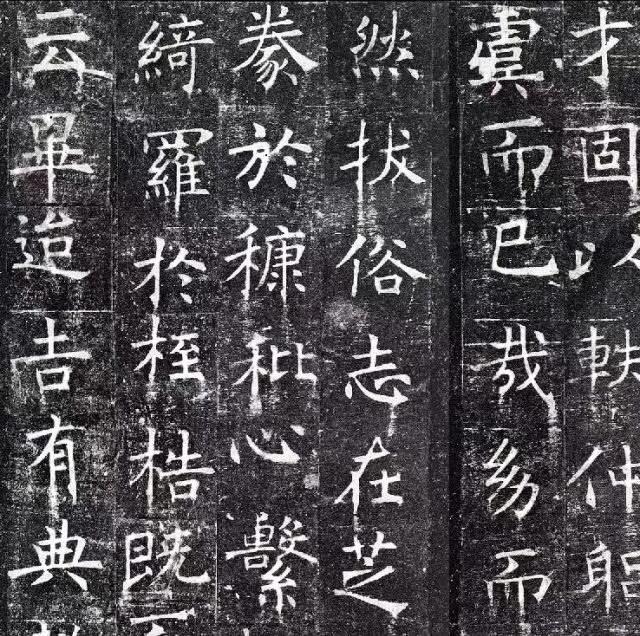 才固以軼仲
虞而已哉幼而
然拔俗志在芝
豢於穅秕心繫
綺羅於桎梏既
云畢迨吉有典